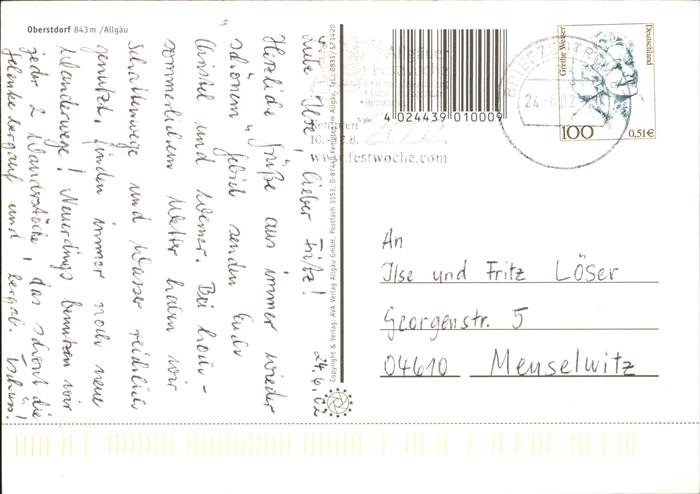 Oberstdorf 843 m /Allgäu
24.6.02
Liebe Ilse, lieber Fritz!
Herzliche Grüße aus immer wieder
schönem senden Euch
Christel und Werner. Bei hoch-
sommerlichem Wetter haben wir
Schattenwege und Wasser reichlich
genutzt, finden immer noch neue
Wanderwege! Neuerdings benutzen wir
jeder 2 Wanderstöcke, das schont die
Gelenke bergauf und bergab. Tschüss!
Copyright & Verlag: AVA Verlag Allgäu GmbH, Postfach 3153, D-87440 Kempten im Allgäu, Tel.: 0831/571420
Allgäuer
Festwoche
Kempten
www.festwoche.com
4 024439 010009
BRIEFZENTRUM
24
Grethe Weiser
Deutschland
100
0,51€
An
Ilse und Fritz Löser
Georgenstr. 5
04610 Meuselwitz